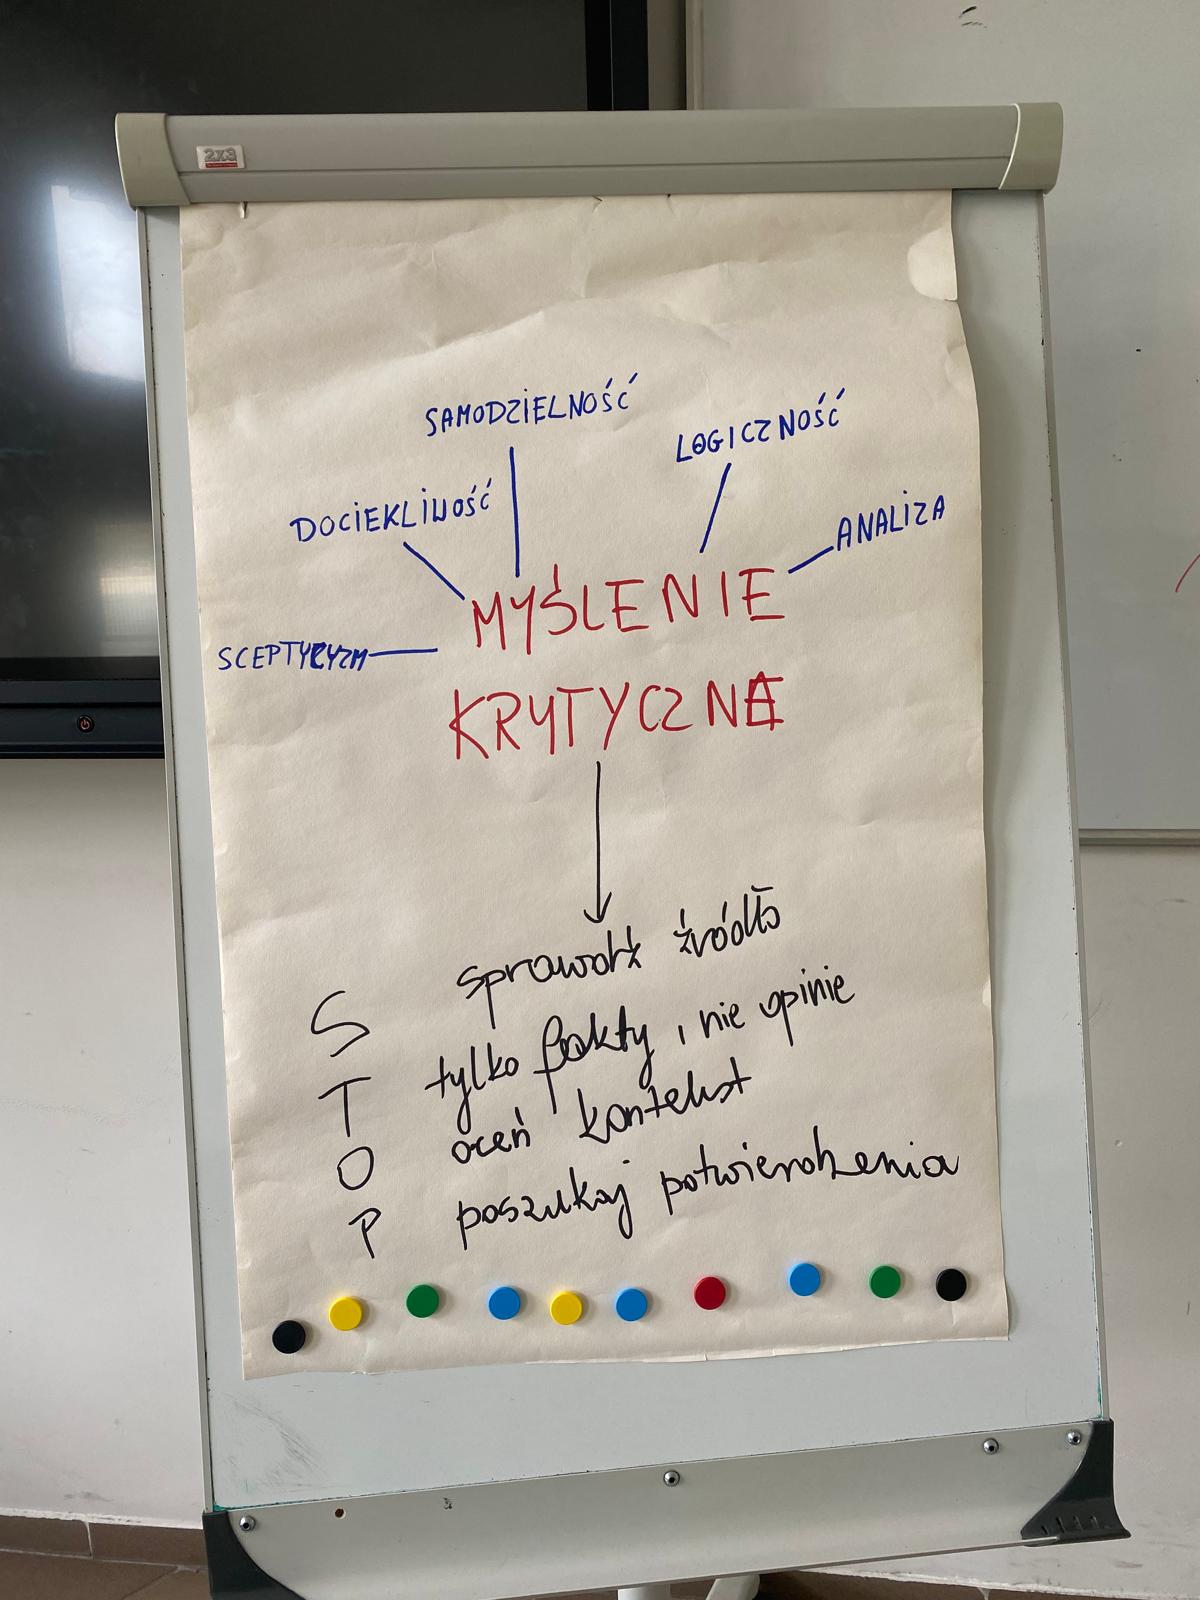 2x3
SAMODZIELNOŚĆ
LOGICZNOŚĆ
DOCIEKLIWOŚĆ
ANALIZA
MYŚLENIE
SCEPTYCYZM
KRYTYCZNE
sprawdź źródło
S
tylko fakty, nie opinie
T
oceń kontekst
O
poszukaj potwierdzenia
P